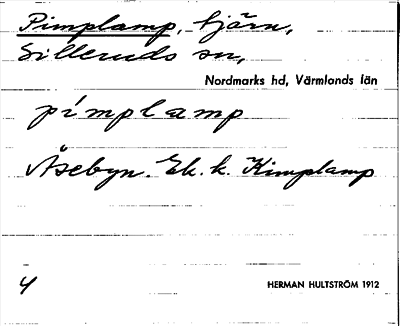 Pimplamp, tjärn,
Silleruds sn,
Nordmarks hd, Värmlands län
pímplamp
Åsebyn. Ek. k. Kimplamp
4
HERMAN HULTSTRÖM 1912